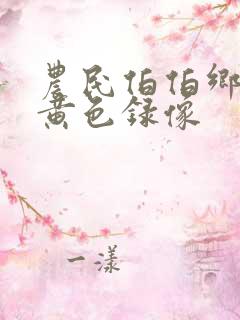 農民伯伯鄉
黄色録像
一漾